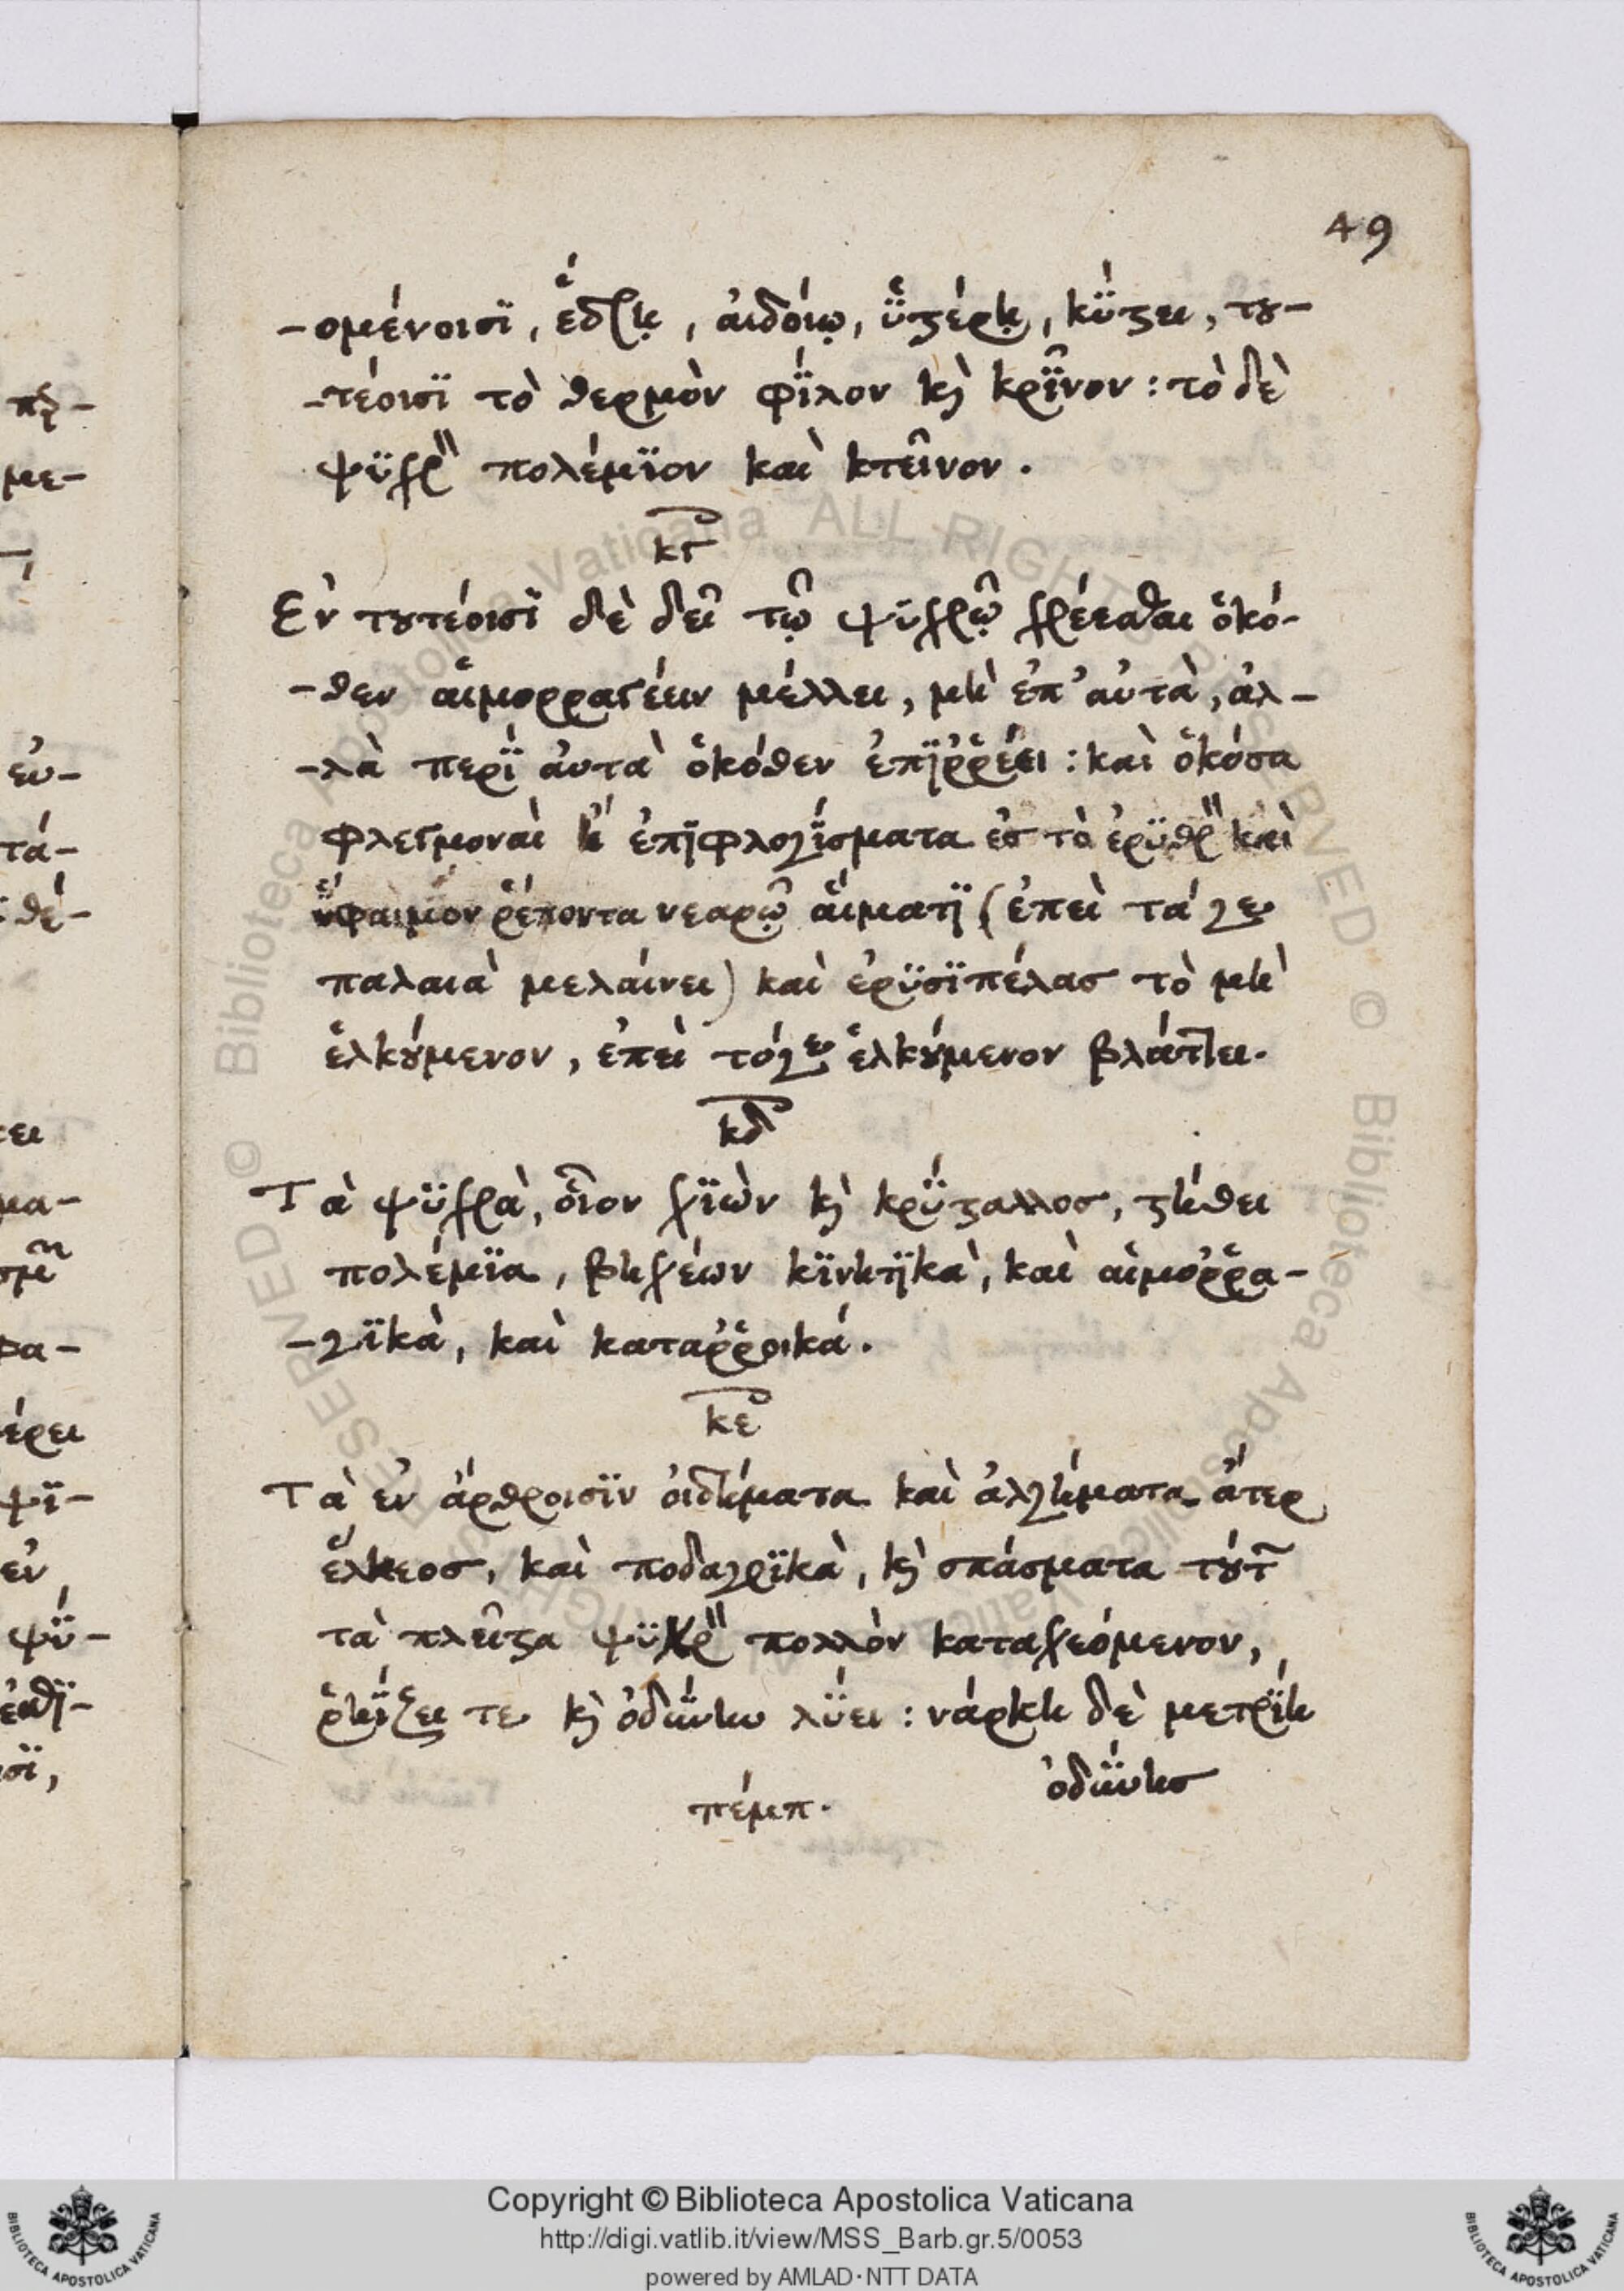 49
-ομένοισϊ, ἕδρῃ, αἰδοίῳ, ὑϊστέρῃ, κύϊστει, του-
-τέοισϊ τὸ θερμὸν φΐλον κὶ κρῖνον : τὸ δὲ
ψϋχρὸν πολέμϊον καὶ κτεῖνον.
κγ
Εν τουτέοισϊ δὲ δεῖ τῷ ψϋχρῷ χρέεσθαι ὁκό-
-θεν αἱμορραγέειν μέλλει, μὴ ἐπ' αὐτὰ, ἀλ-
-λὰ περῒ αὐτὰ ὁκόθεν ἐπϊῤῥέει : καὶ ὁκόσα
φλεγμοναὶ ἢ ἐπϊφλογΐσματα ἐσ τὸ ἐρϋθρὸν καὶ
ὕφαιμον ῥέποντα νεαρῷ αἵματϊ (ἐπεὶ τά γε
παλαιὰ μελαίνει) καὶ ἐρϋσϊπέλασ τὸ μὴ
ἑλκούμενον, ἐπεὶ τό γε ἑλκούμενον βλάπτει.
κδ
Τὰ ψϋχρὰ, οἷον χϊὼν κὶ κρΰσταλλοσ, στήθει
πολέμϊα, βηχέων κϊνητϊκὰ, καὶ αἱμοῤῥα-
-γϊκὰ, καὶ καταῤῥοικά.
κε
Τὰ ἐν ἄρθροισϊν οἰδήματα καὶ ἀλγήματα ἄτερ
ἕλκεοσ, καὶ ποδαγρϊκὰ, κὶ σπάσματα τούτων
τὰ πλεῖστα ψϋχρὸν πολλὸν καταχεόμενον,
ῥηΐζει τε κὶ ὀδύνην λΰει : νάρκη δὲ μετρΐη
ὀδύνησ
πέμπ.
Copyright © Biblioteca Apostolica Vaticana
http://digi.vatlib.it/view/MSS_Barb.gr.5/0053
powered by AMLAD·NTT DATA